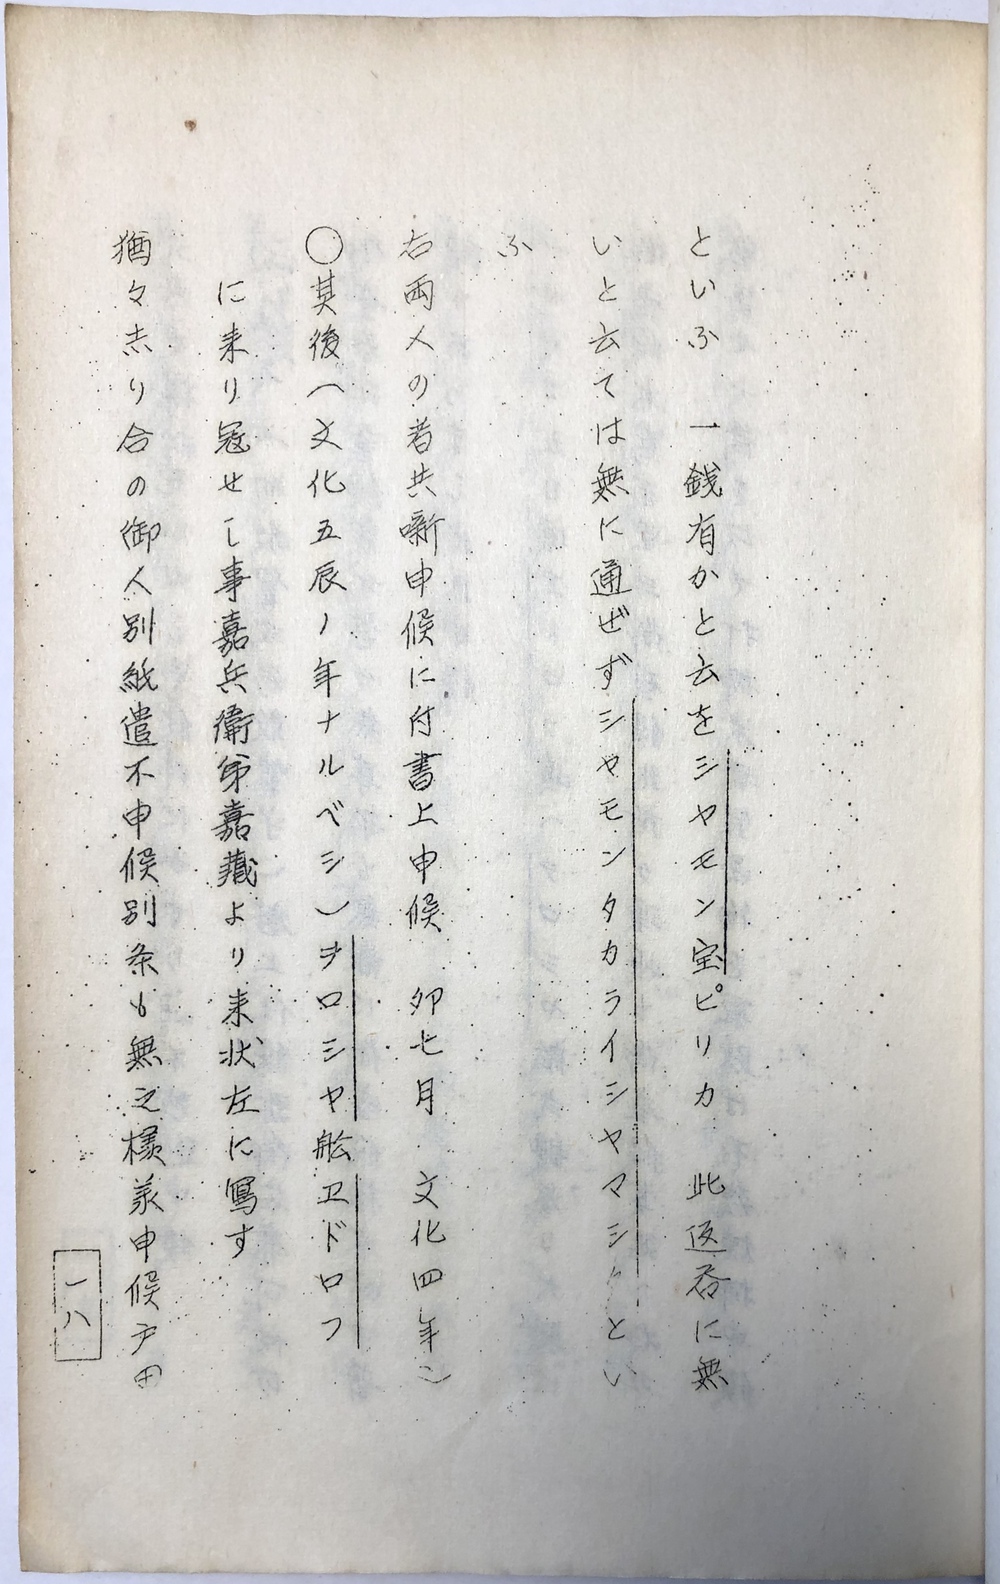 といふ　一銭有かと云をシャモン宝ピリカ　此返呑に無
いと云ては無に通ぜずシャモンタカライシヤマシクとい
ふ
右両人の者共噺申候に付書上申候　卯七月　文化四年)
〇其後(文化五辰ノ年ナルベシ)ヲロシヤ舩ヱドロフ
に来り冠せし事嘉兵衛弟嘉蔵より来状左に寫す
猶々志り合の御人別紙遣不申候別条も無之様美申候戸田
一八